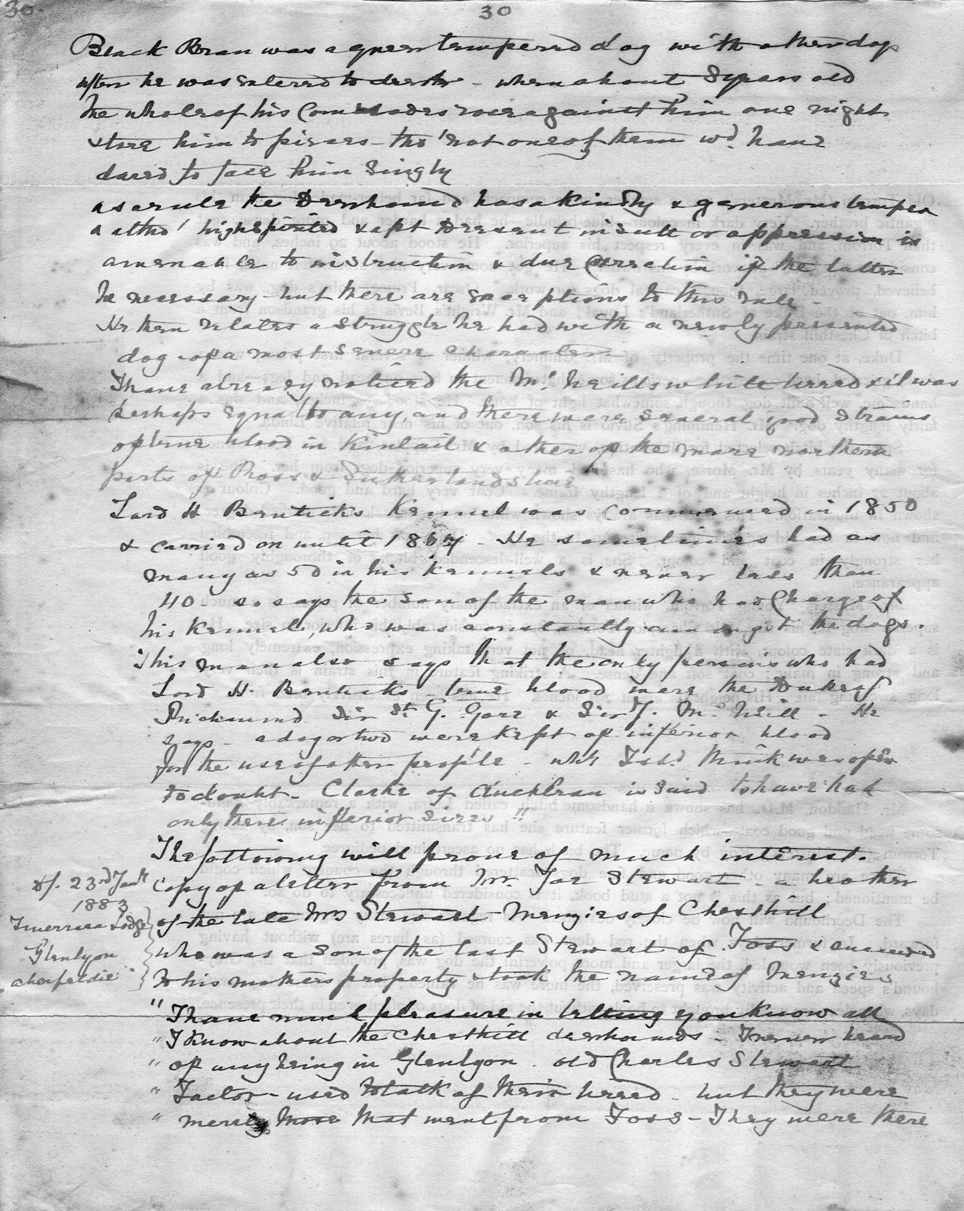 30.
30
Black Bran was a queer tempered dog with other dogs
after he was entered to deer - when about 8 years old
the whole of his Comrades rose against him one night
& tore him to pieces - tho' not one of them wd. have
dared to face him Singly
as a rule the Deerhound has a kindly & generous temper
& altho' high spirited & apt to resent insult or oppression is
amenable to instruction & due Correction if the latter
be necessary - but there are exceptions to this rule -
He then relates a struggle he had with a newly presented
dog - of a most severe character
I have already noticed the Mc. Neills white breed & it was
perhaps equal to any, and there were several good strains
of true blood in Kintail & other of the more northern
parts of Ross & Sutherlandshire
Lord H Bentick's Kennel was Commenced in 1850
& carried on until 1864 - He sometimes had as
many as 50 in his Kennels & never less than
40 so says the son of the man who had Charge of
his Kennel, who was constantly among st the dogs.
This man also says that the only persons who had
Lord H. Bentick's - true blood were the Duke of
Richmond Sir St. G. Gore & Sir J. Mc. Neill - He
says - a dog or two were kept of inferior blood
for the use of other people - wh. I shd. think was open
to doubt - Clarke of Auchlran is said to have had
only these inferior Sires !!
The following will prove of much interest.
Copy of a letter from Mr. Jas Stewart - a brother
of the late Mrs Stewart - Menzies of Chesthill
who was a son of the last Stewart of Foss & succeeded
to his mothers property & took the name of Menzies
df. 23rd Jany
1883
Lodge
Glenlyon
Aberfeldie
" I have much pleasure in telling you Know all
" I Know about the Chesthill deerhounds - I never heard
" of any being in Glenlyon - old Charles Stewart
" Factor - used to talk of their breed - but they were
" merely those that went from Foss - They were there